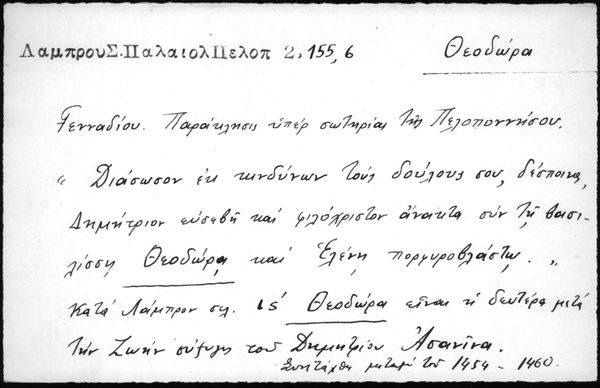 ΛαμπρουΣ.ΠαλαιολΠελοπ 2, 155, 6 Θεοδώρα
Γενναδίου. Παράκλησις ὑπέρ σωτηρίας τῆς Πελοποννήσου.
" Διάσωσον ἐκ κινδύνων τούς δούλους σου, δέσποινα,
Δημήτριον εὐσεβῆ καί φιλόχριστον ἄνακτα σύν τῇ βασι-
λίσσῃ Θεοδώρᾳ καί Ἑλένῃ πορφυροβλάστῳ. "
Κατά Λάμπρον σελ. ιϛ' Θεοδώρα εἶναι ἡ δευτέρα μετά
τήν Ζωήν σύζυγος τοῦ Δημητρίου Ἀσανίνα.
Συνετάχθη μεταξύ τοῦ 1454 - 1460.